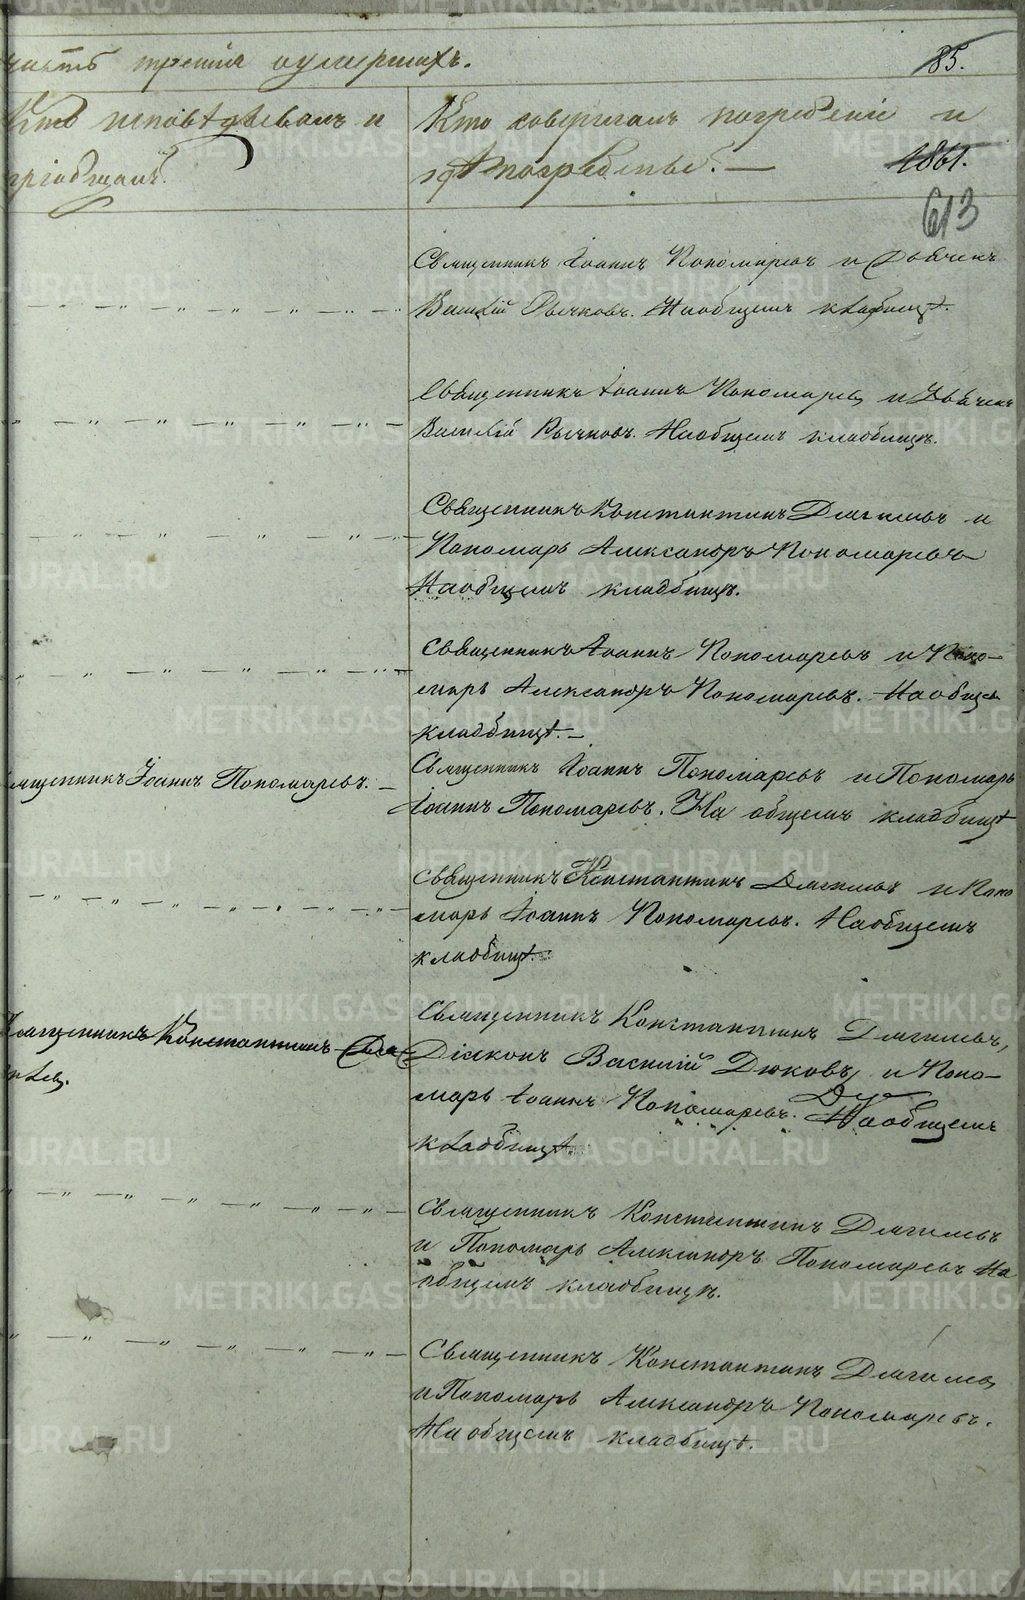 часть третія оумершихъ.
85.
Кто исповѣдывалъ и
пріобщалъ.
Кто совершалъ погребеніе и
гдѣ погребены. —
1861.
613
Священникъ Іоаннъ Пономаревъ и Дьячекъ
Василій Рычковъ. На общемъ кладбищѣ.
Священникъ Іоаннъ Пономаревъ и Дьячекъ
Василій Рычковъ. На общемъ кладбищѣ.
Священникъ Константинъ Дягилевъ и
Пономарь Александръ Пономаревъ
На общемъ кладбищѣ.
Священникъ Іоаннъ Пономаревъ и Поно-
марь Александръ Пономаревъ. На общем
кладбищѣ. —
священникъ Іоаннъ Пономаревъ. —
Священникъ Іоаннъ Пономаревъ и Пономарь
Іоаннъ Пономаревъ. На общемъ кладбищѣ
Священникъ Константинъ Дягилевъ и Поно
марь Іоаннъ Пономаревъ. На общемъ
кладбищѣ.
Священникъ Константинъ Дяги-
левъ.
Священникъ Константинъ Дягилевъ,
Діаконъ Василій Дюковъ, и Поно-
марь Іоаннъ Пономаревъ. На общемъ
кладбищѣ.
Священникъ Константинъ Дягилевъ
и Пономарь Александръ Пономаревъ На
общемъ кладбищѣ.
Священникъ Константинъ Дягилевъ
и Пономарь Александръ Пономаревъ.
На общемъ кладбищѣ.
METRIKI.GASO-URAL.RU